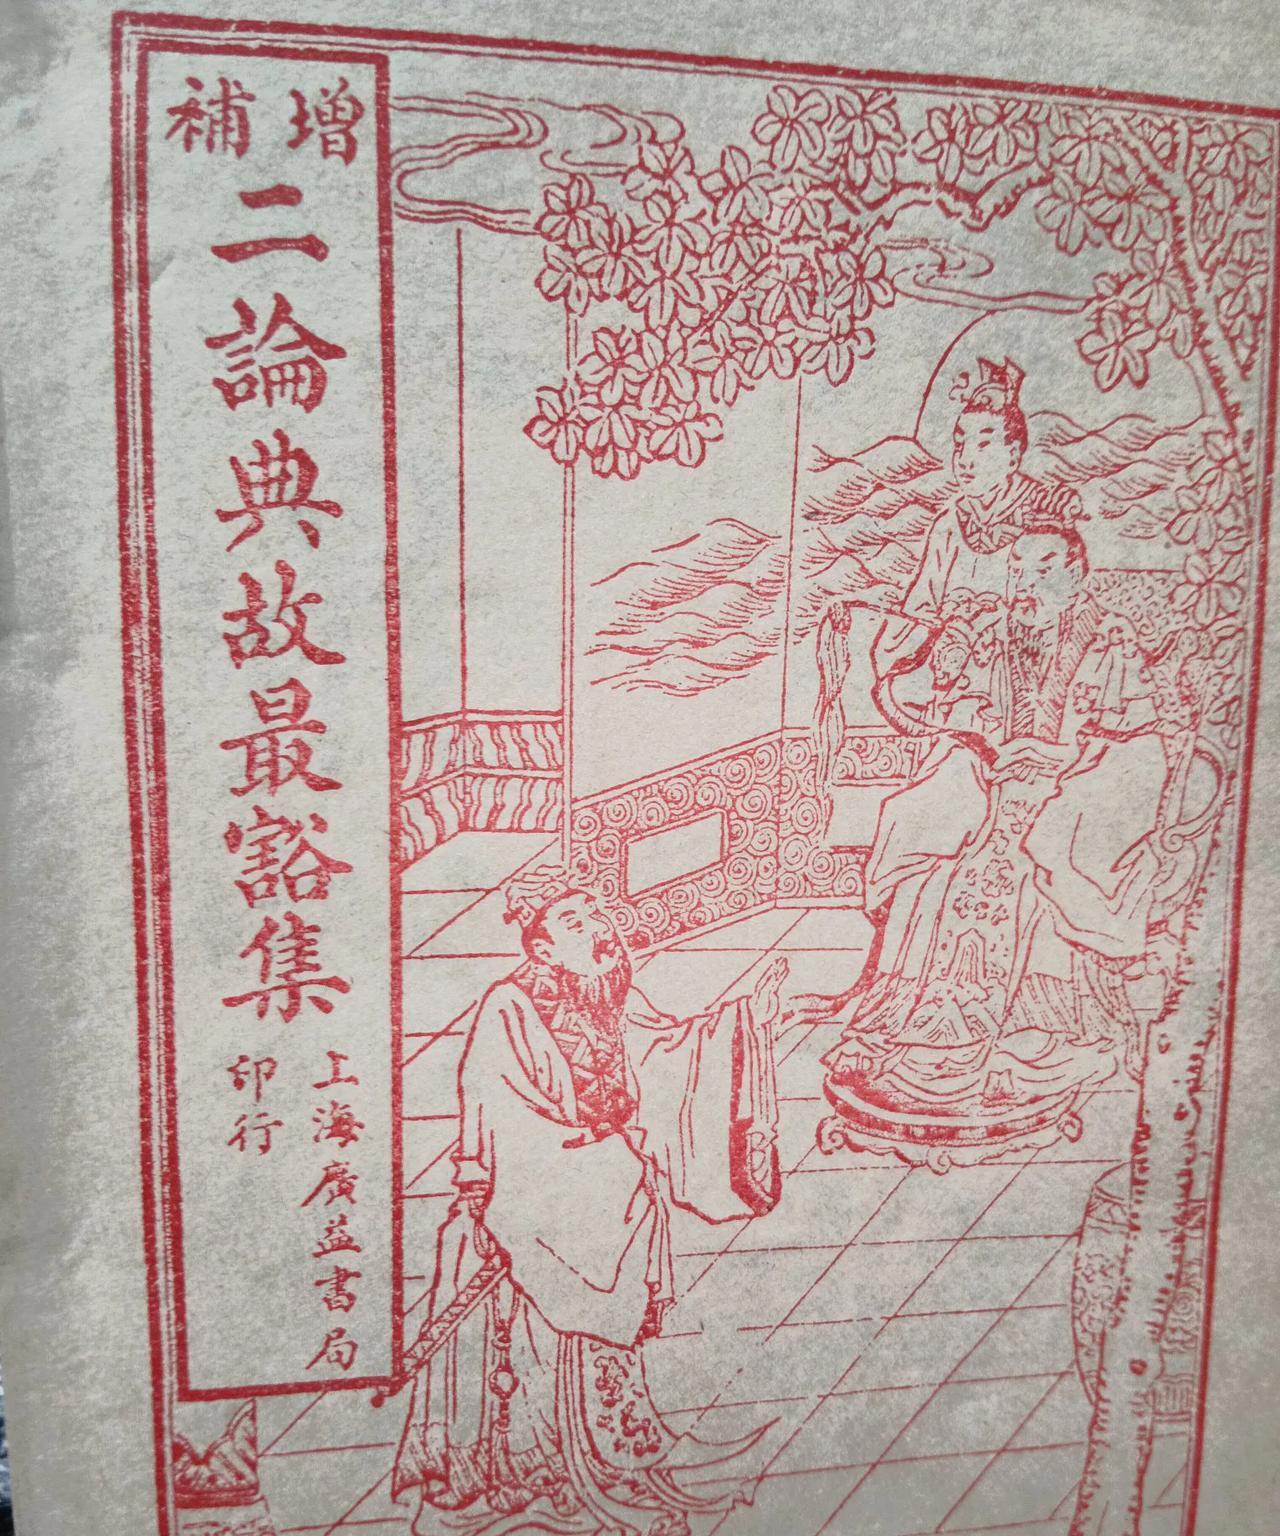 增補
二論典故最豁集
上海廣益書局
印行